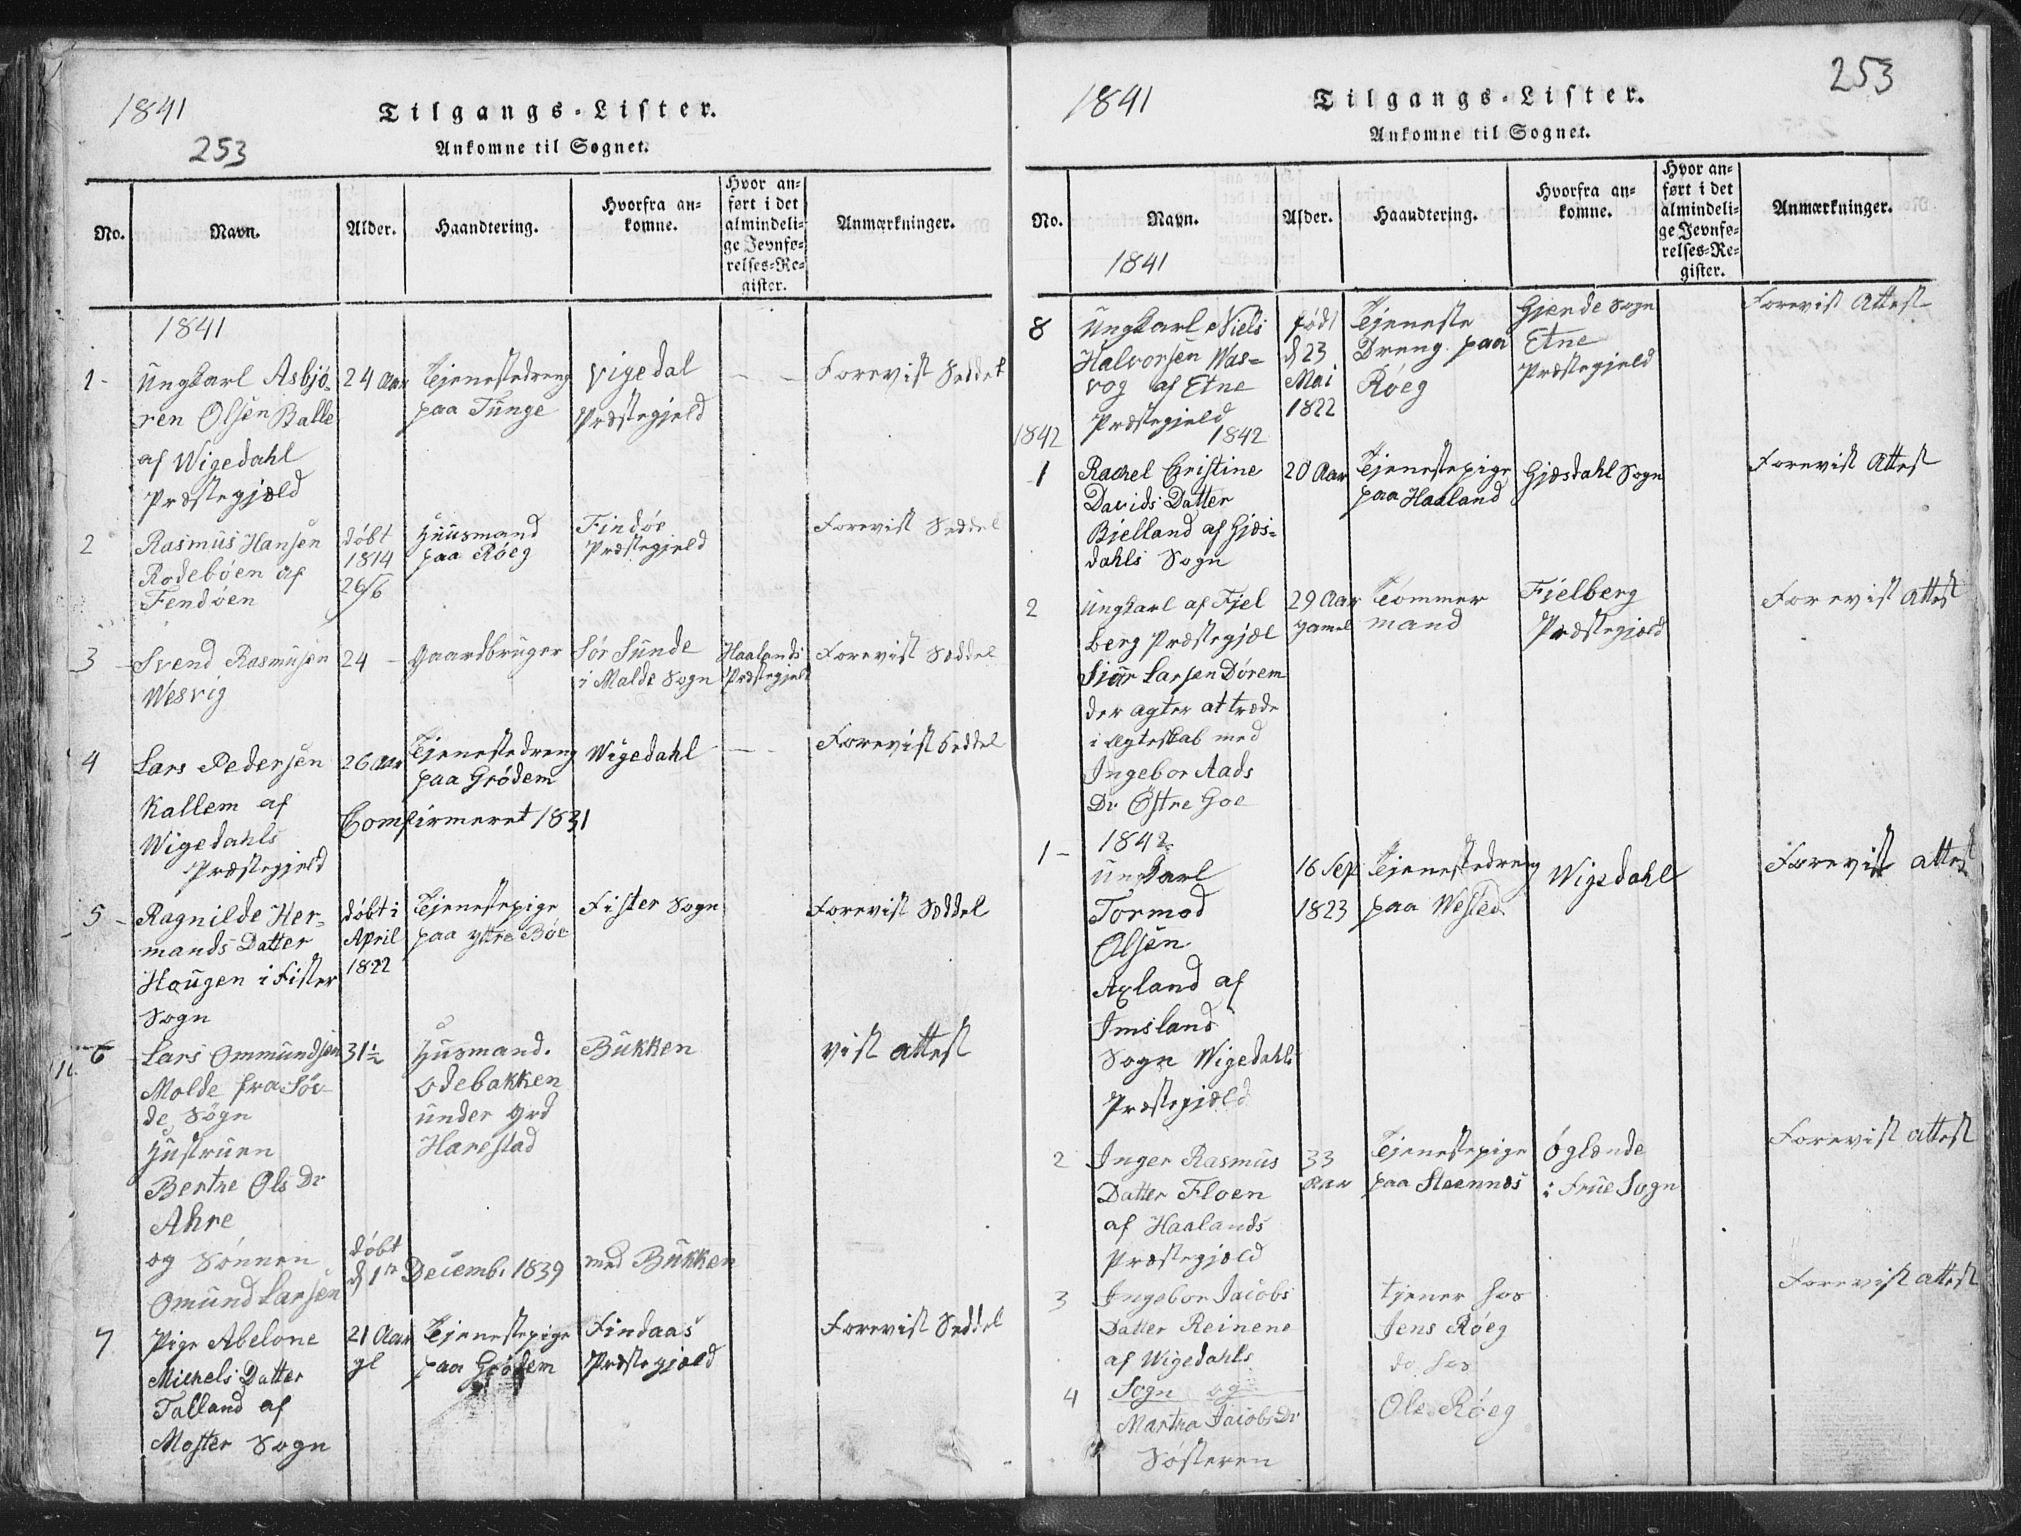 1841
Tilgangs-Lister.
253
Ankomne til Sognet.
No.
Navn.
Alder.
Haandtering.
Hvorfra an-
komne.
Hvor an-
ført i det
almindeli-
ge Jevnfø-
relses-Re-
gister.
Anmærkninger.
1841
1 -
Ungkarl Asbjø-
ren Olsen Balle
af Wigedahl
Præstegjæld
24 Aar
Tjenestedreng
paa Tunge
Vigedal
Præstegjeld
Forevist Seddel
2
Rasmus Hansen
Rodebøen af
Fendøen
døbt
1814
26/6
Huusmand
paa Røeg
Findøe
Præstegjeld
Forevist Seddel
3
Svend Rasmusen
Wesvig
24 -
Gaardbruger
Sør Sunde
i Malde Sogn
Haalands
Præstegjeld
Forevist Seddel
4
Lars Pedersen
Kallem af
Wigedahls
Præstegjeld
26 Aar
Tjenestedreng
paa Grødem
Comfirmeret 1831
Wigedahl
Forevist Seddel
5 -
Ragnilde Her-
mands Datter
Haugen i Fister
Sogn
døbt i
April
1822
Tjenestepige
paa yttre Bøe
Fister Sogn
Forevist Seddel
6
Lars Ommundsen
Molde fra Søv-
de Sogn
Hustruen
Bertre Ols Dr
Ahre
og Sønnen
Omund Larsen
31½
Husmand.
Odebakken
under Grd
Harestad
Bukken
vist attest
døbt
d 1te Decemb. 1839
med Bukken
7
Pige Abelone
Michels Datter
Talland af
Moster Sogn
21 Aar
gl
Tjenestepige
paa Grødem
Findaas
Præstegjæld
Forevist Seddel
1841
Tilgangs-Lister.
253
Ankomne til Sognet.
No.
Navn.
Alder.
Haandtering.
Hvorfra an-
komne.
Hvor an-
ført i det
almindeli-
ge Jevnfø-
relses-Re-
gister.
Anmærkninger.
1841
8
Ungkarl Niels
Halvorsen Was-
vog af Etne
Præstegjeld
født
d 23
Mai
1822
Tjeneste
Dreng paa
Røeg
Gjende Sogn
Etne
Præstegjeld
Forevist Attest
1842
1842
1
Rachel Cristine
Davids Datter
Bjelland af Gjæs-
dahls Sogn
20 Aar
Tjenestepige
paa Haaland
Gjæsdahl Sogn
Forevist Attest
2
Ungkarl af Fjel
berg Præstegjæl
Siur Larsen Dørem
der agter at træde
i Ægteskab med
Ingebor Aads
Dr Østre Goe
29 Aar
gamel
Tømmer
mand
Fjelberg
Præstegjæld
Forevist attest
1842
1 -
Ungkarl
Tormod
Olsen
Axland af
Imsland
Sogn Wigedahls
Præstegjæld
16 Sep
1823
Tjenestedreng
paa Wested
Wigedahl
Forevist attest
2
Inger Rasmus
Datter Floen
af Haalands
Præstegjæld
33
Aar
Tjenestepige
paa Steennæs
Øglænde
i Frue Sogn
Forevist attest
3
Ingebor Jacobs
Datter Reinene
af Wigedahls
Sogn og
tjener hos
Jens Røeg
do hos
Forevist attest
4
Martha Jacobs Dr
Søsteren
Ole Røeg